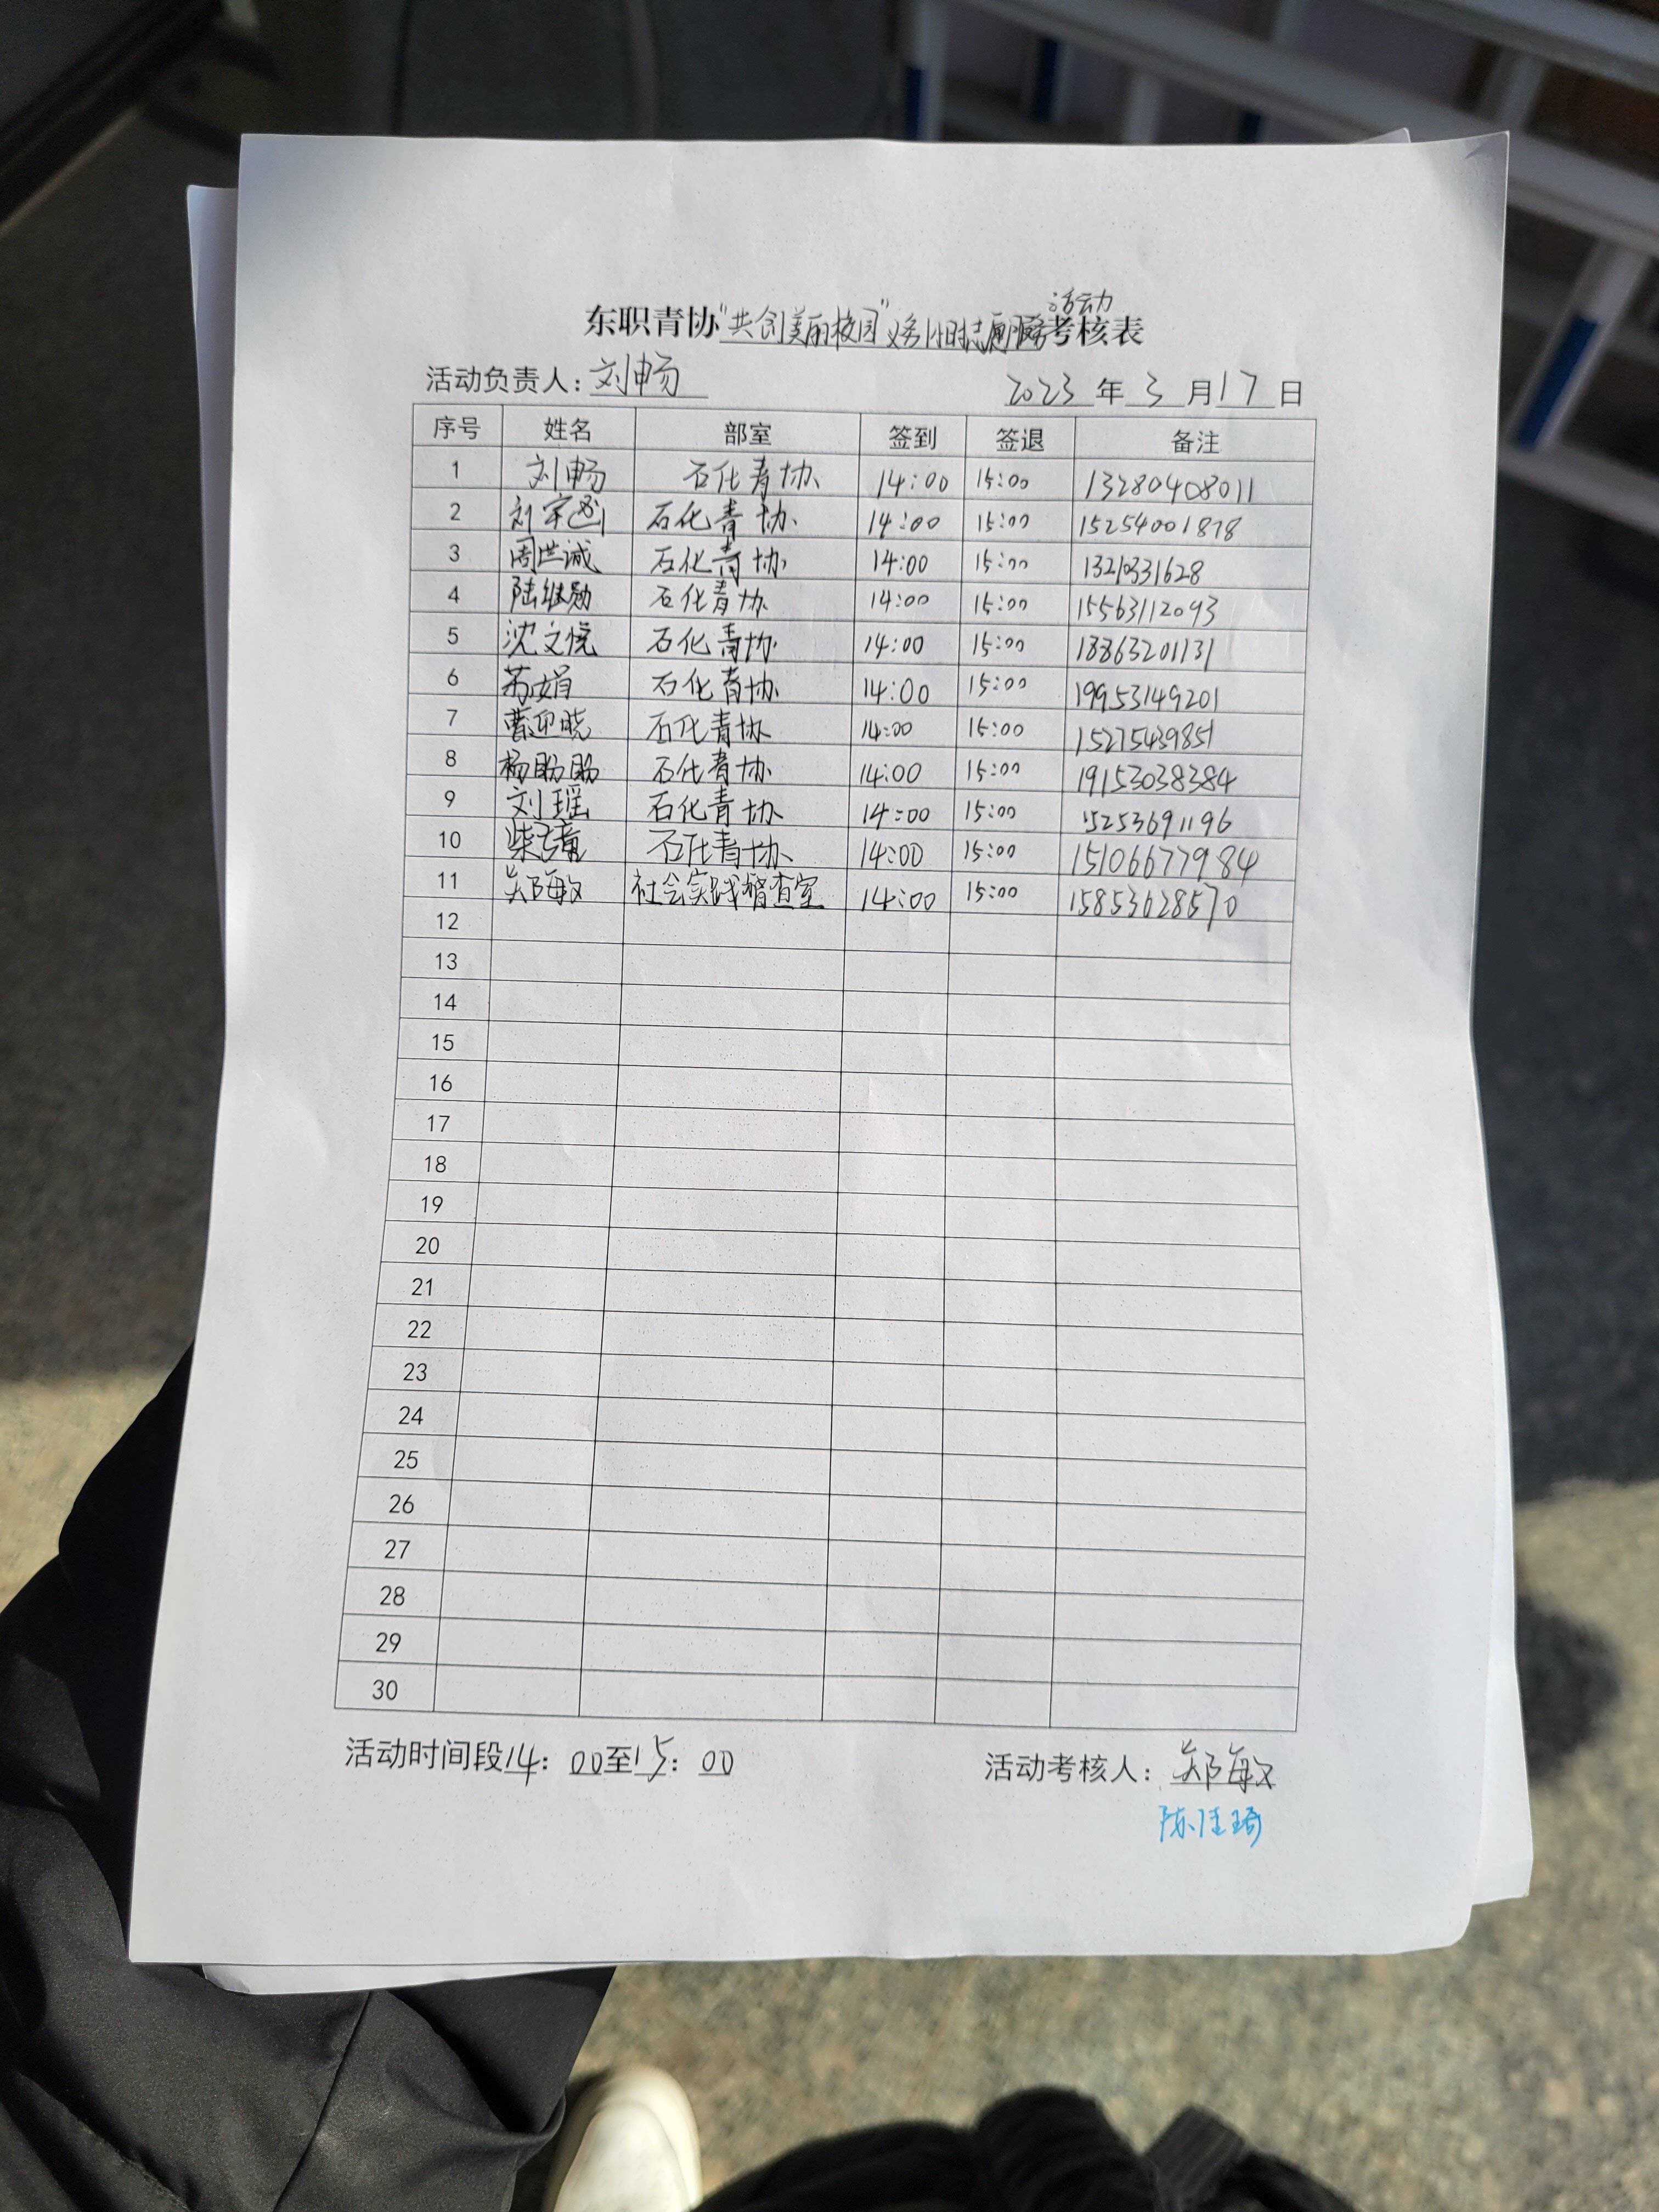 活动
东职青协“共创美丽校园”义务1小时志愿服务考核表
活动负责人：刘畅 2023年3月17日
序号 姓名 部室 签到 签退 备注
1 刘畅 石化青协 14:00 15:00 13280408011
2 刘宇 石化青协 14:00 15:00 15254001878
3 周洪诚 石化青协 14:00 15:00
4 陆继勋 石化青协 14:00 15:00 15563112093
5 沈文悦 石化青协 14:00 15:00 18863201131
6 苏娟 石化青协 14:00 15:00 19953149201
7 曹迎晓 石化青协 14:00 15:00 15275439851
8 杨盼盼 石化青协 14:00 15:00 19153038384
9 刘瑶 石化青协 14:00 15:00 15253691196
10 柴 石化青协 14:00 15:00 15106677984
11 郑敏 社会实践稽查室 14:00 15:00 15853628570
12
13
14
15
16
17
18
19
20
21
22
23
24
25
26
27
28
29
30
活动时间段14：00至15：00 活动考核人：郑敏
陈佳琦